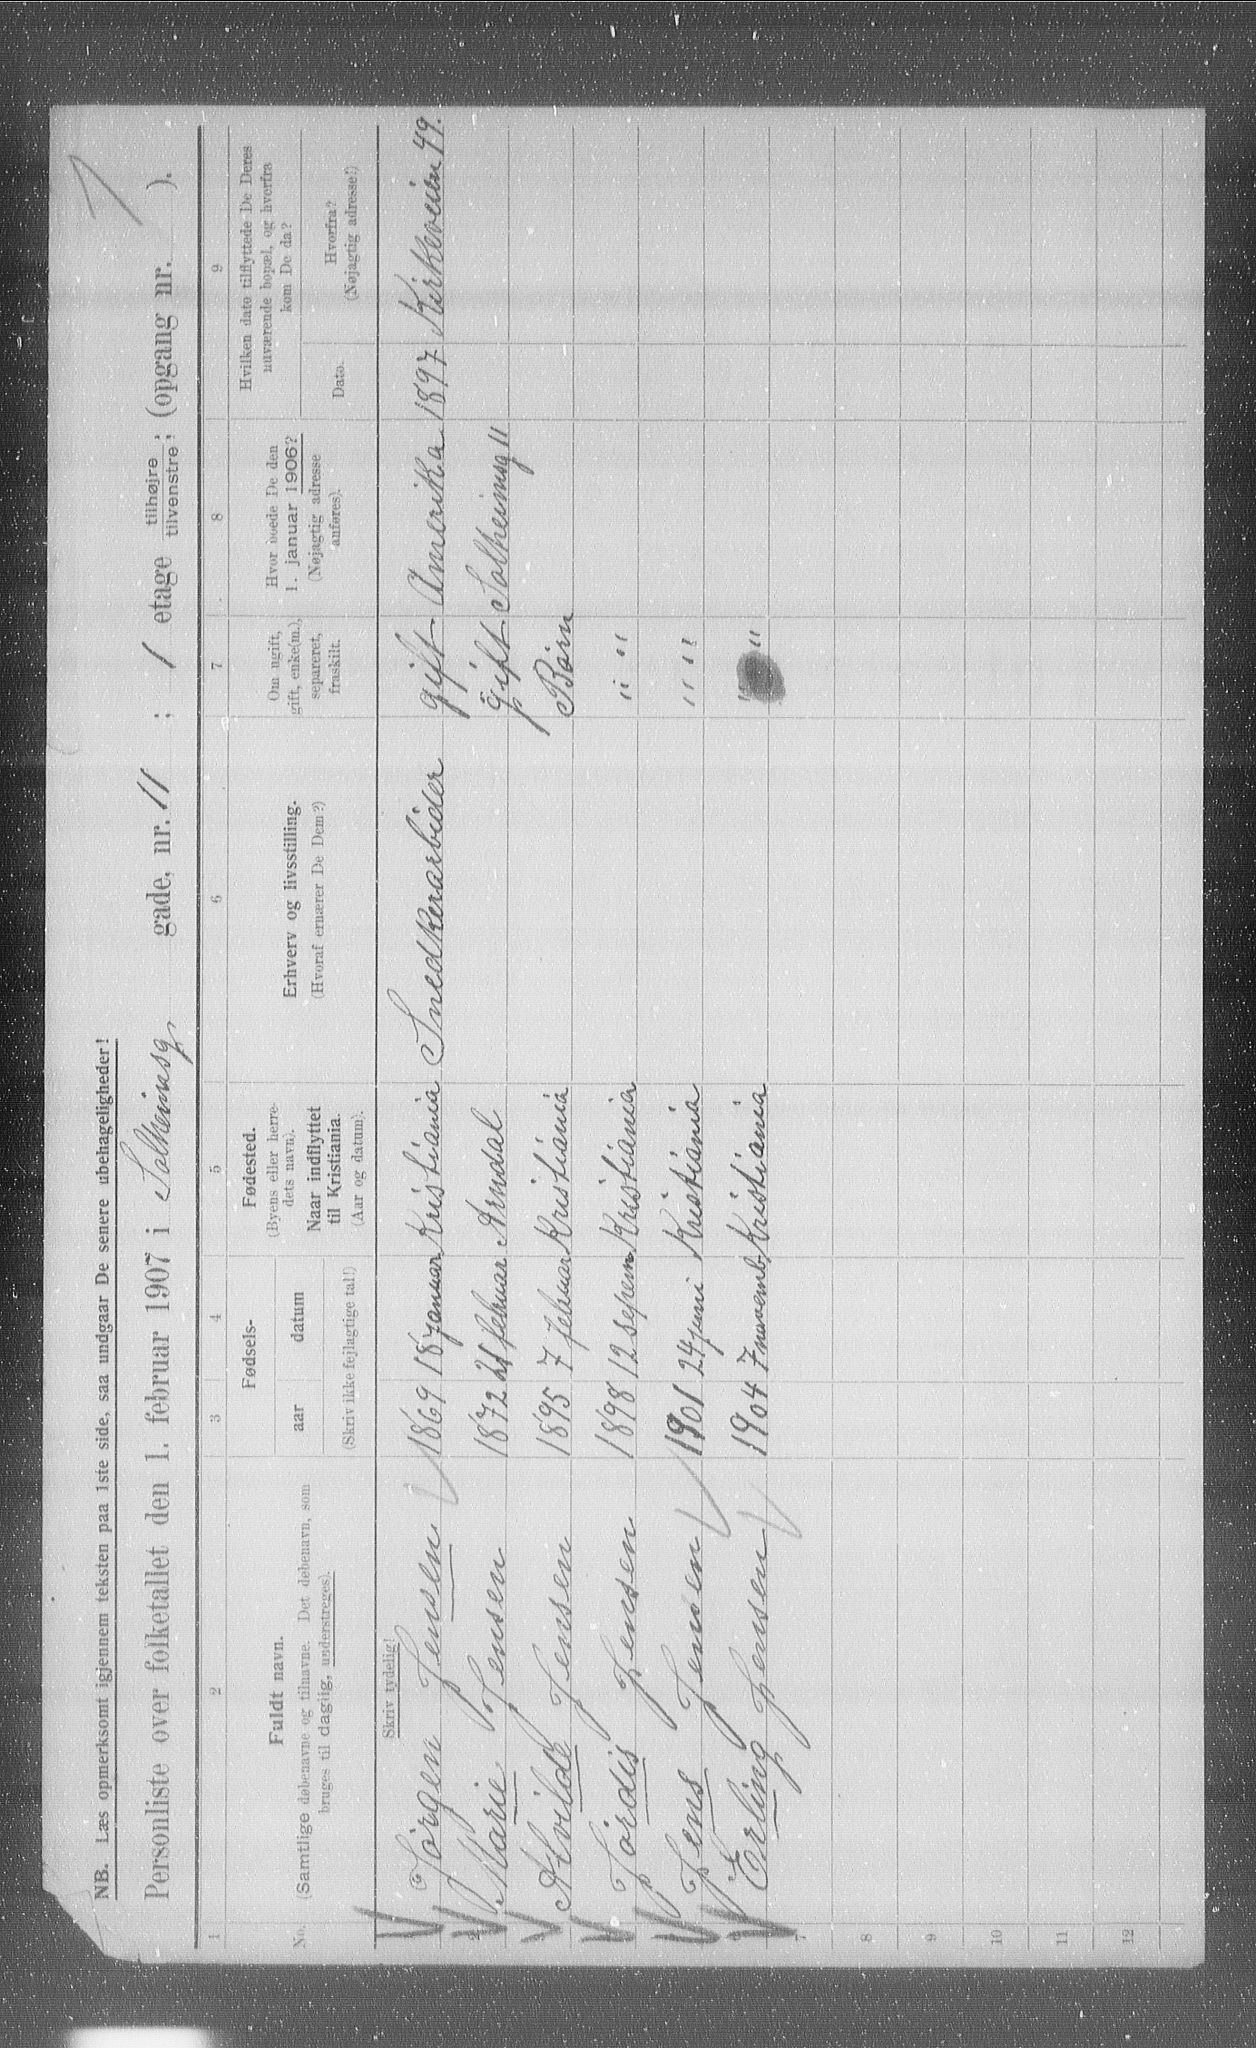 NB. Læs opmerksomt igjennem teksten paa 1ste side, saa undgaar De senere ubehageligheder!
Personliste over folketallet den 1. februar 1907 i Solheimsg gade, nr. 11 ; 1 etage tilhøjre / tilvenstre ; (opgang nr. ).
1 2 3 4 5 6 7 8 9
No.
Fuldt navn.
(Samtlige døbenavne og tilnavne. Det døbenavn, som
bruges til daglig, understreges).
Fødsels-
aar datum
(Skriv ikke fejlagtige tal!)
Fødested.
(Byens eller herre-
dets navn).
Naar indflyttet
til Kristiania.
(Aar og datum).
Erhverv og livsstilling.
(Hvoraf ernærer De Dem?)
Om ugift,
gift, enke(m.),
separeret,
fraskilt.
Hvor boede De den
1. januar 1906?
(Nøjagtig adresse
anføres).
Hvilken dato tilflyttede De Deres
nuværende bopæl, og hvorfra
kom De da?
Dato.
Hvorfra?
(Nøjagtig adresse!)
Skriv tydelig!
Jørgen Jensen 1869 18 januar Kristiania Snedkerarbeider gift Amerika 1897 Kirkeveien 49.
2 Marie Jensen 1872 21 februar Arndal gift Solheimsg 11
Alvilde Jensen 1895 7 februar Kristiania Børn
Jørdis Jensen 1898 12 sepem Kristiania " "
Jens Jensen 1901 24 juni Kristiania " "
6 Erling Jensen 1904 7 novemb Kristiania " "
7
8
9
10
11
12